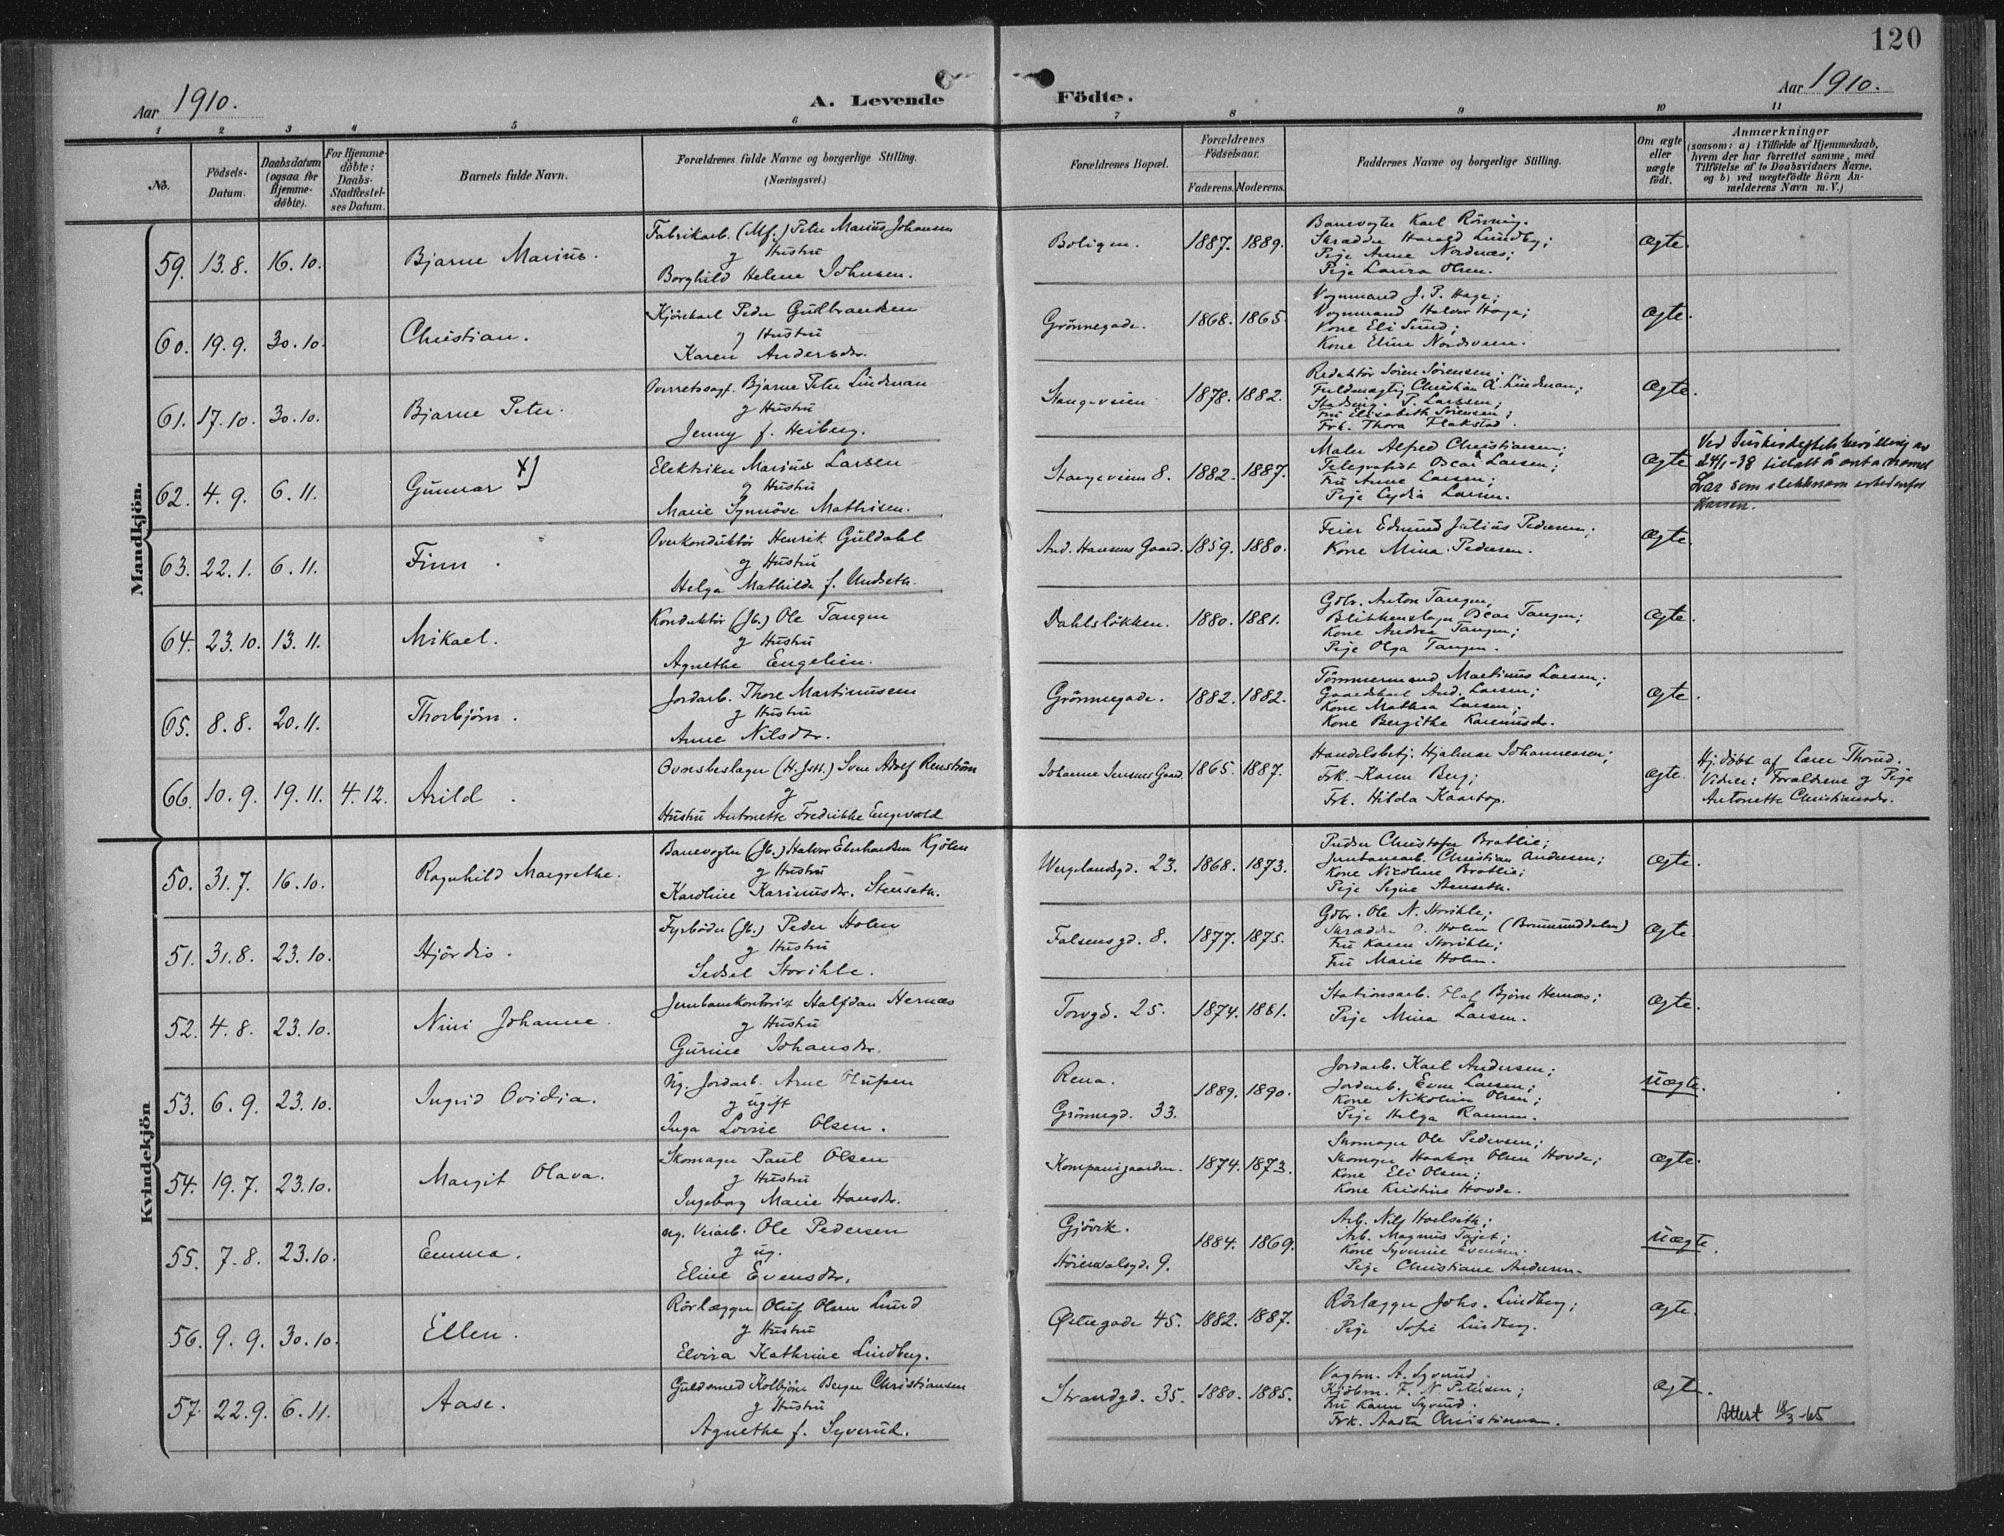 120
Aar 1910.
A. Levende Födte.
Aar 1910.
1 2 3 4 5 6 7 8 9 10 11
No.
Födsels-Datum.
Daabsdatum (ogsaa for Hjemme-döbte).
For Hjemme-döbte: Daabs-Stadfæstel-ses Datum.
Barnets fulde Navn.
Forældrenes fulde Navne og borgerlige Stilling. (Næringsvei.)
Forældrenes Bopæl.
Forældrenes Födselsaar.
Faderens. Moderens.
Faddernes Navne og borgerlige Stilling.
Om ægte eller uægte födt.
Anmærkninger
(saasom: a) i Tilfælde af Hjemmedaab,
hvem der har forrettet samme, med
Tilföielse af to Daabsvidners Navne,
og b) ved uægtefödte Börn An-
melderens Navn m. V.)
Mandkjön.
59. 13.8. 16.10. Bjarne Marius.
Fabrikarb. (Mf.) Peter Marius Johansen
g Hustru
Borghild Helene Johnsen.
Boligen. 1887. 1889.
Banevogter Karl Rönning.
Skrædder Harald Lundby;
Pige Anne Nordnæs;
Pige Laura Olsen.
ægte.
60. 19.9. 30.10. Christian.
Kjörekarl Peder Gulbrandsen
g Hustru
Karen Andersdr.
Grönnegade. 1868. 1865.
Vognmand J. P. Hage;
Vognmand Halvor Hage;
Kone Eli Sund;
Kone Eline Nordsveen.
ægte.
61. 17.10. 30.10. Bjarne Peter.
Overretssagf. Bjarne Peter Lindman
g Hustru
Jenny f. Heiberg.
Stangeveien. 1878. 1882.
Redaktör Sören Sörensen;
Fuldmægtig Christian A. Lindman;
Stadsing. P. Larssen;
Fru Elisabeth Sörensen;
Frk. Thora Flakstad.
ægte.
62. 4.9. 6.11. Gunnar x)
Elektriker Marius Larsen
g Hustru
Marie Synnöve Mathisen.
Stangeveien 8. 1882. 1887.
Maler Alfred Christiansen;
Telegrafist Oscar Larsen;
Fru Anne Larsen;
Pige Lydia Larsen.
ægte
Ved Justisdeptets bevilling av
24/1-38 tillatt å anta navnet
Lar som slektsnavn istedenfor
Larsen.
63. 22.1. 6.11. Finn.
Overkonduktör Henrik Guldahl
g Hustru
Helga Mathilde f. Undseth.
And. Hansens Gaard. 1859. 1880.
Feier Edmund Julius Pedersen;
Kone Mina Pedersen.
ægte.
64. 23.10. 13.11. Mikael.
Konduktör (Jb.) Ole Tangen
g Hustru
Agnethe Engelien.
Dahlslökken. 1880. 1881.
Gdbr. Anton Tangen,
Blikkenslager Oscar Tangen;
Kone Andrea Tangen;
Pige Olga Tangen.
ægte.
65. 8.8. 20.11. Thorbjörn.
Jordarb. Thore Martinusen
g Hustru
Anne Nilsdr.
Grönnegade. 1882. 1882.
Tömmermand Martinus Larsen;
Gaardskarl And. Larsen;
Kone Mathea Larsen;
Kone Bergithe Karenusdr.
ægte.
66. 10.9. 19.11. 4.12. Arild.
Ovnsbeslager (H. Jst.) Sven Adolf Renström
g
Hustru Antonette Fredrikke Engevold
Johanne Jensens Gaard. 1865. 1887.
Handelsbetj. Hjalmar Johannessen;
Frk. Karen Berg;
Frk. Hilda Kaartop.
ægte.
Hj.döbt af Lærer Thorud.
Vidner: Forældrene g Pige
Antonette Christiansdr.
Kvindekjön
50. 31.7. 16.10. Ragnhild Margrethe.
Banevogter (Jb.) Halvor Eberhardsen Kjölen
g Hustru
Karoline Karinusdr. Stenseth.
Wergelandsgd. 23. 1868. 1873.
Pudser Christofer Bratlie;
Jernbanearb. Christian Andersen;
Kone Nicoline Bratlie;
Pige Signe Stenseth.
ægte.
51. 31.8. 23.10. Hjördis.
Fyrböder (Jb.) Peder Holen
g Hustru
Sidsel Storihle.
Falsensgd. 8. 1877. 1875.
Gdbr. Ole N. Storihle;
Skrædder O. Holen (Brumunddalen)
Fru Karen Storihle;
Fru Marie Holen.
ægte.
52. 4.8. 23.10. Nini Johanne.
Jernbanekontorist Halfdan Hernæs
g Hustru
Gurine Johansdr.
Torvgd. 25. 1874. 1881.
Stationsarb. Olaf Björn Hernæs;
Pige Mina Larsen.
ægte.
53. 6.9. 23.10. Ingrid Ovidia.
Ug. Jordarb. Arne Olufsen
g ugift
Inga Lovise Olsen.
Rena.
Grönnegd. 33.
1889. 1890.
Jordarb. Karl Andersen;
Jordarb. Even Larsen;
Kone Nikoline Olsen;
Pige Helga Ramm.
uægte.
54. 19.7. 23.10. Margit Olava.
Skomager Paul Olsen
g Hustru
Ingeborg Marie Hansdr.
Kompanigaarden. 1874. 1873.
Skomager Ole Pedersen;
Skomager Haakon Olsen Hovde;
Kone Eli Olsen;
Kone Kristine Hovde.
ægte.
55. 7.8. 23.10. Emma.
ug. Veiarb. Ole Pedersen
g ug.
Eline Evensdr.
Gjövik.
Höiensalsgd. 9.
1884. 1869.
Arb. Nils Hoelseth;
Arb. Magnus Tajet;
Kone Syverine Evensen.
Pige Christiane Andersen.
uægte.
56. 9.9. 30.10. Ellen.
Rörlægger Oluf Olsen Lund
g Hustru
Elvira Kathrine Lindberg.
Østregade 45. 1882. 1887.
Rörlægger Johs. Lindberg;
Pige Sofie Lindberg.
ægte.
57. 22.9. 6.11. Aase.
Guldsmed Kolbjörn Berger Christiansen
g Hustru
Agnethe f. Syverud.
Strandgd. 35. 1880. 1885.
Vagtm. A. Syverud.
Kjöbm. F. N. Petersen;
Fru Karen Syverud.
Frk. Aasta Christiansen.
ægte.
Attest 18/3-65